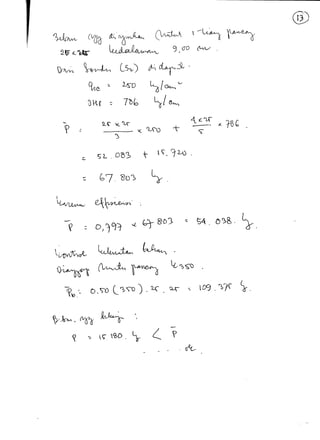 13
Beban yg diijinkan untuk 1 tiang pancang
25 x 25 kedalaman 9,00 m
Dari Sondir (S2) di dapat :
qc = 250 kg/cm²
JHF = 786 kg/cm
P = 25 x 25 / 3 x 250 + 4 x 25 / 5 x 786
= 52.083 + 15.720
= 67.803 kg
karena effisiensi :
P = 0,797 x 67.803 = 54.038. kg
kontrol kekuatan bahan.
Dianggap mutu pancang K350
Pb = 0.50 (350). 25 . 25 = 109.375 kg.
B.bn. yg bekerja :
P = 15 180. kg < P
ok.